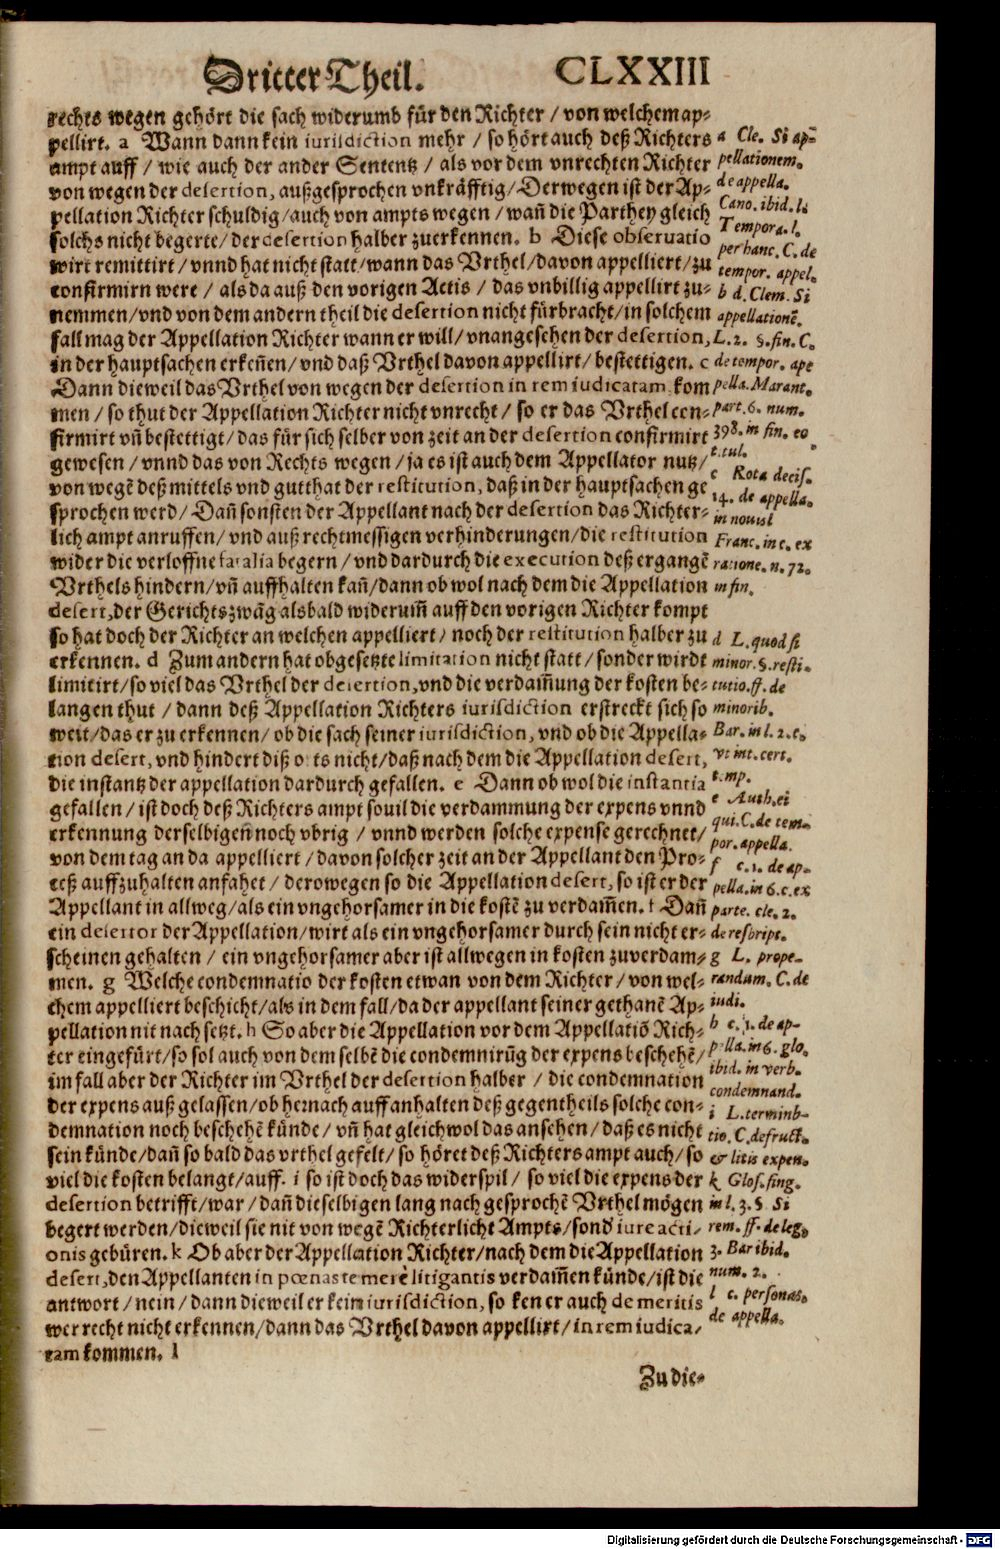 Dritter Theil. CLXXIII
rechts wegen gehört die sach widerumb für den Richter / von welchem ap⸗
pellirt. a Wann dann kein iurisdiction mehr / so hört auch deß Richters
ampt auff / wie auch der ander Sententz / als vor dem vnrechten Richter
von wegen der desertion, außgesprochen vnkräfftig / Derwegen ist der Ap⸗
pellation Richter schuldig / auch von ampts wegen / wañ die Parthey gleich
solchs nicht begerte / der desertion halber zuerkennen. b Diese obseruatio
wirt remittirt / vnnd hat nicht statt / wann das Vrthel / davon appelliert / zu
confirmirn were / als da auß den vorigen Actis / das vnbillig appellirt zu⸗
nemmen / vnd von dem andern theil die desertion nicht fürbracht / in solchem
fall mag der Appellation Richter wann er will / vnangesehen der desertion,
in der hauptsachen erkeñen / vnd daß Vrthel davon appellirt / bestettigen. c
Dann dieweil das Vrthel von wegen der desertion in rem iudicatam kom
men / so thut der Appellation Richter nicht vnrecht / so er das Vrthel con⸗
firmirt vñ bestettigt / das für sich selber von zeit an der desertion confirmirt
gewesen / vnnd das von Rechts wegen / ja es ist auch dem Appellator nutz /
von wegẽ deß mittels vnd gutthat der restitution, daß in der hauptsachen ge
sprochen werd / Dañ sonsten der Appellant nach der desertion das Richter⸗
lich ampt anruffen / vnd auß rechtmessigen verhinderungen / die restitution
wider die verloffne fatalia begern / vnd dardurch die execution deß ergangẽ
Vrthels hindern / vñ auffhalten kañ / dann ob wol nach dem die Appellation
desert, der Gerichtszwãg alsbald widerum̃ auff den vorigen Richter kompt
so hat doch der Richter an welchen appelliert / noch der restitution halber zu
erkennen. d Zum andern hat obgesetzte limitation nicht statt / sonder wirdt
limitirt / so viel das Vrthel der desertion, vnd die verdam̃ung der kosten be⸗
langen thut / dann deß Appellation Richters iurisdiction erstreckt sich so
weit / das er zu erkennen / ob die sach seiner iurisdiction, vnd ob die Appella⸗
tion desert, vnd hindert diß orts nicht / daß nach dem die Appellation desert,
die instantz der appellation dardurch gefallen. e Dann ob wol die instantia
gefallen / ist doch deß Richters ampt souil die verdammung der expens vnnd
erkennung derselbigeñ noch vbrig / vnnd werden solche expense gerechnet /
von dem tag an da appelliert / davon solcher zeit an der Appellant den Pro⸗
ceß auffzuhalten anfahet / derowegen so die Appellation desert, so ist er der
Appellant in allweg / als ein vngehorsamer in die kostẽ zu verdam̃en. f Dañ
ein desertor der Appellation / wirt als ein vngehorsamer durch sein nicht er⸗
scheinen gehalten / ein vngehorsamer aber ist allwegen in kosten zuverdam⸗
men. g Welche condemnatio der kosten etwan von dem Richter / von wel⸗
chem appelliert beschicht / als in dem fall / da der appellant seiner gethanẽ Ap⸗
pellation nit nach setzt. h So aber die Appellation vor dem Appellatiõ Rich⸗
ter eingefürt / so sol auch von dem selbẽ die condemnirũg der expens beschehẽ /
im fall aber der Richter im Vrthel der desertion halber / die condemnation
der expens auß gelassen / ob hernach auff anhalten deß gegentheils solche con⸗
demnation noch beschehẽ künde / vñ hat gleichwol das ansehen / daß es nicht
sein künde / dañ so bald das vrthel gefelt / so höret deß Richters ampt auch / so
viel die kosten belangt / auff. i so ist doch das widerspil / so viel die expens der
desertion betrifft / war / dañ dieselbigen lang nach gesprochẽ Vrthel mögen
begert werden / dieweil sie nit von wegẽ Richterlicht Ampts / sond iure acti⸗
onis gebüren. k Ob aber der Appellation Richter / nach dem die Appellation
desert, den Appellanten in pœnas temerè litigantis verdam̃en künde / ist die
antwort / nein / dann dieweil er kein iurisdiction, so ken er auch de meritis
wer recht nicht erkennen / dann das Vrthel davon appellirt / in rem iudica⸗
tam kommen. l
Zu die⸗
a Cle. Si ap⸗
pellationem.
de appella.
Cano. ibid. l.
Tempora. l.
per hanc. C. de
tempor. appel.
b d. Clem. Si
appellationẽ.
L. 2. §. fin. C.
de tempor. ape
pella. Marant.
part. 6. num.
398. in fin. eo
t. tul.
c Rota decis.
14. de appella.
in nouis
Franc. in c. ex
ratione. n. 72.
in fin.
d L. quod si
minor. §. resti⸗
tutio. ff. de
minorib.
Bar. in l. 2. c.
vt int. cert.
temp.
e Auth. ei
qui. C. de tem⸗
por. appella.
f c. 1. de ap⸗
pella. in 6. c. ex
parte. cle. 2.
de rescript.
g L. prope⸗
randum. C. de
iudi.
h c. 1. de ap⸗
pella. in 6. glo.
ibid. in verb.
condemnand.
i L. terminb⸗
tio. C. de fruct.
& litis expen.
k Glos. sing.
in l. 3. §. Si
rem. ff. de leg.
3. Bar ibid.
num. 2.
l c. personas.
de appella.
Digitalisierung gefördert durch die Deutsche Forschungsgemeinschaft - DFG